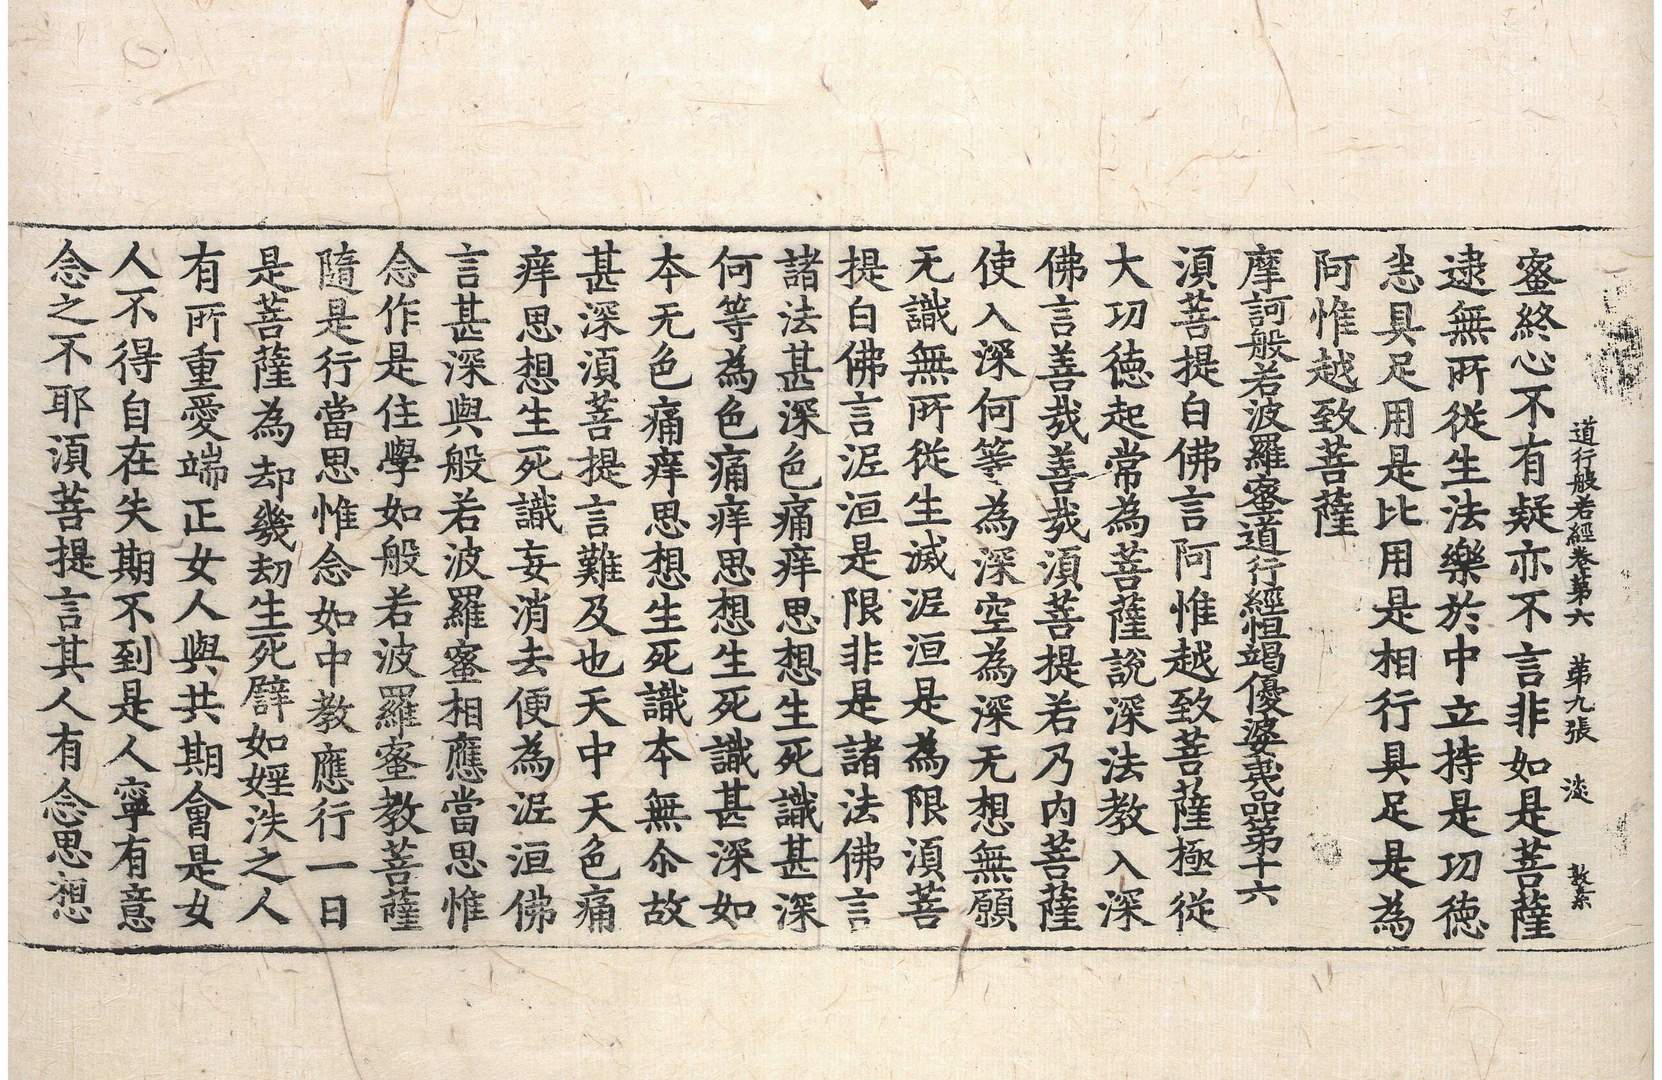 道行般若經卷第六　第九張　淡
蜜終心不有疑亦不言非如是菩薩
逮無所從生法樂於中立持是功徳
悉具足用是比用是相行具足是為
阿惟越致菩薩
摩訶般若波羅蜜道行經恒竭優婆夷品第十六
湏菩提白佛言阿惟越致菩薩極從
大功徳起常為菩薩說深法教入深
佛言善㦲善㦲湏菩提若乃内菩薩
使入深何等為深空為深无想無願
无識無所從生滅泥洹是為限湏菩
提白佛言泥洹是限非是諸法佛言
諸法甚深色痛痒思想生死識甚深
何等為色痛痒思想生死識甚深如
本无色痛痒思想生死識本無尒故
甚深湏菩提言難及也天中天色痛
痒思想生死識妄消去便為泥洹佛
言甚深與般若波羅蜜相應當思惟
念作是住學如般若波羅蜜教菩薩
隨是行當思惟念如中教應行一日
是菩薩為却幾劫生死譬如婬泆之人
有所重愛端正女人與共期會是女
人不得自在失期不到是人寧有意
念之不耶湏菩提言其人有念思想